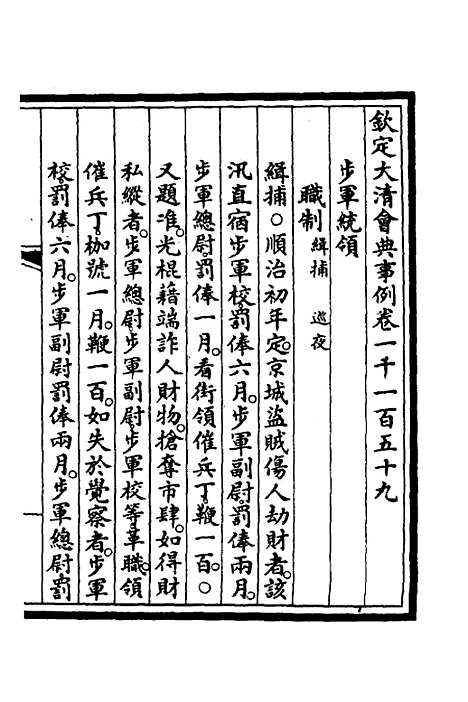 欽定大清會典事例卷一千一百五十九
步軍統領
職制 緝捕 巡夜
緝捕○順治初年定。京城盜賊傷人劫財者。該
汛直宿步軍校。罰俸六月。步軍副尉。罰俸兩月。
步軍總尉。罰俸一月。看街領催兵丁。鞭一百。○
又題准。光棍藉端詐人財物。搶奪市肆。如得財
私縱者。步軍總尉。步軍副尉。步軍校等革職。領
催兵丁。枷號一月。鞭一百。如失於覺察者。步軍
校。罰俸六月。步軍副尉罰俸兩月。步軍總尉罰